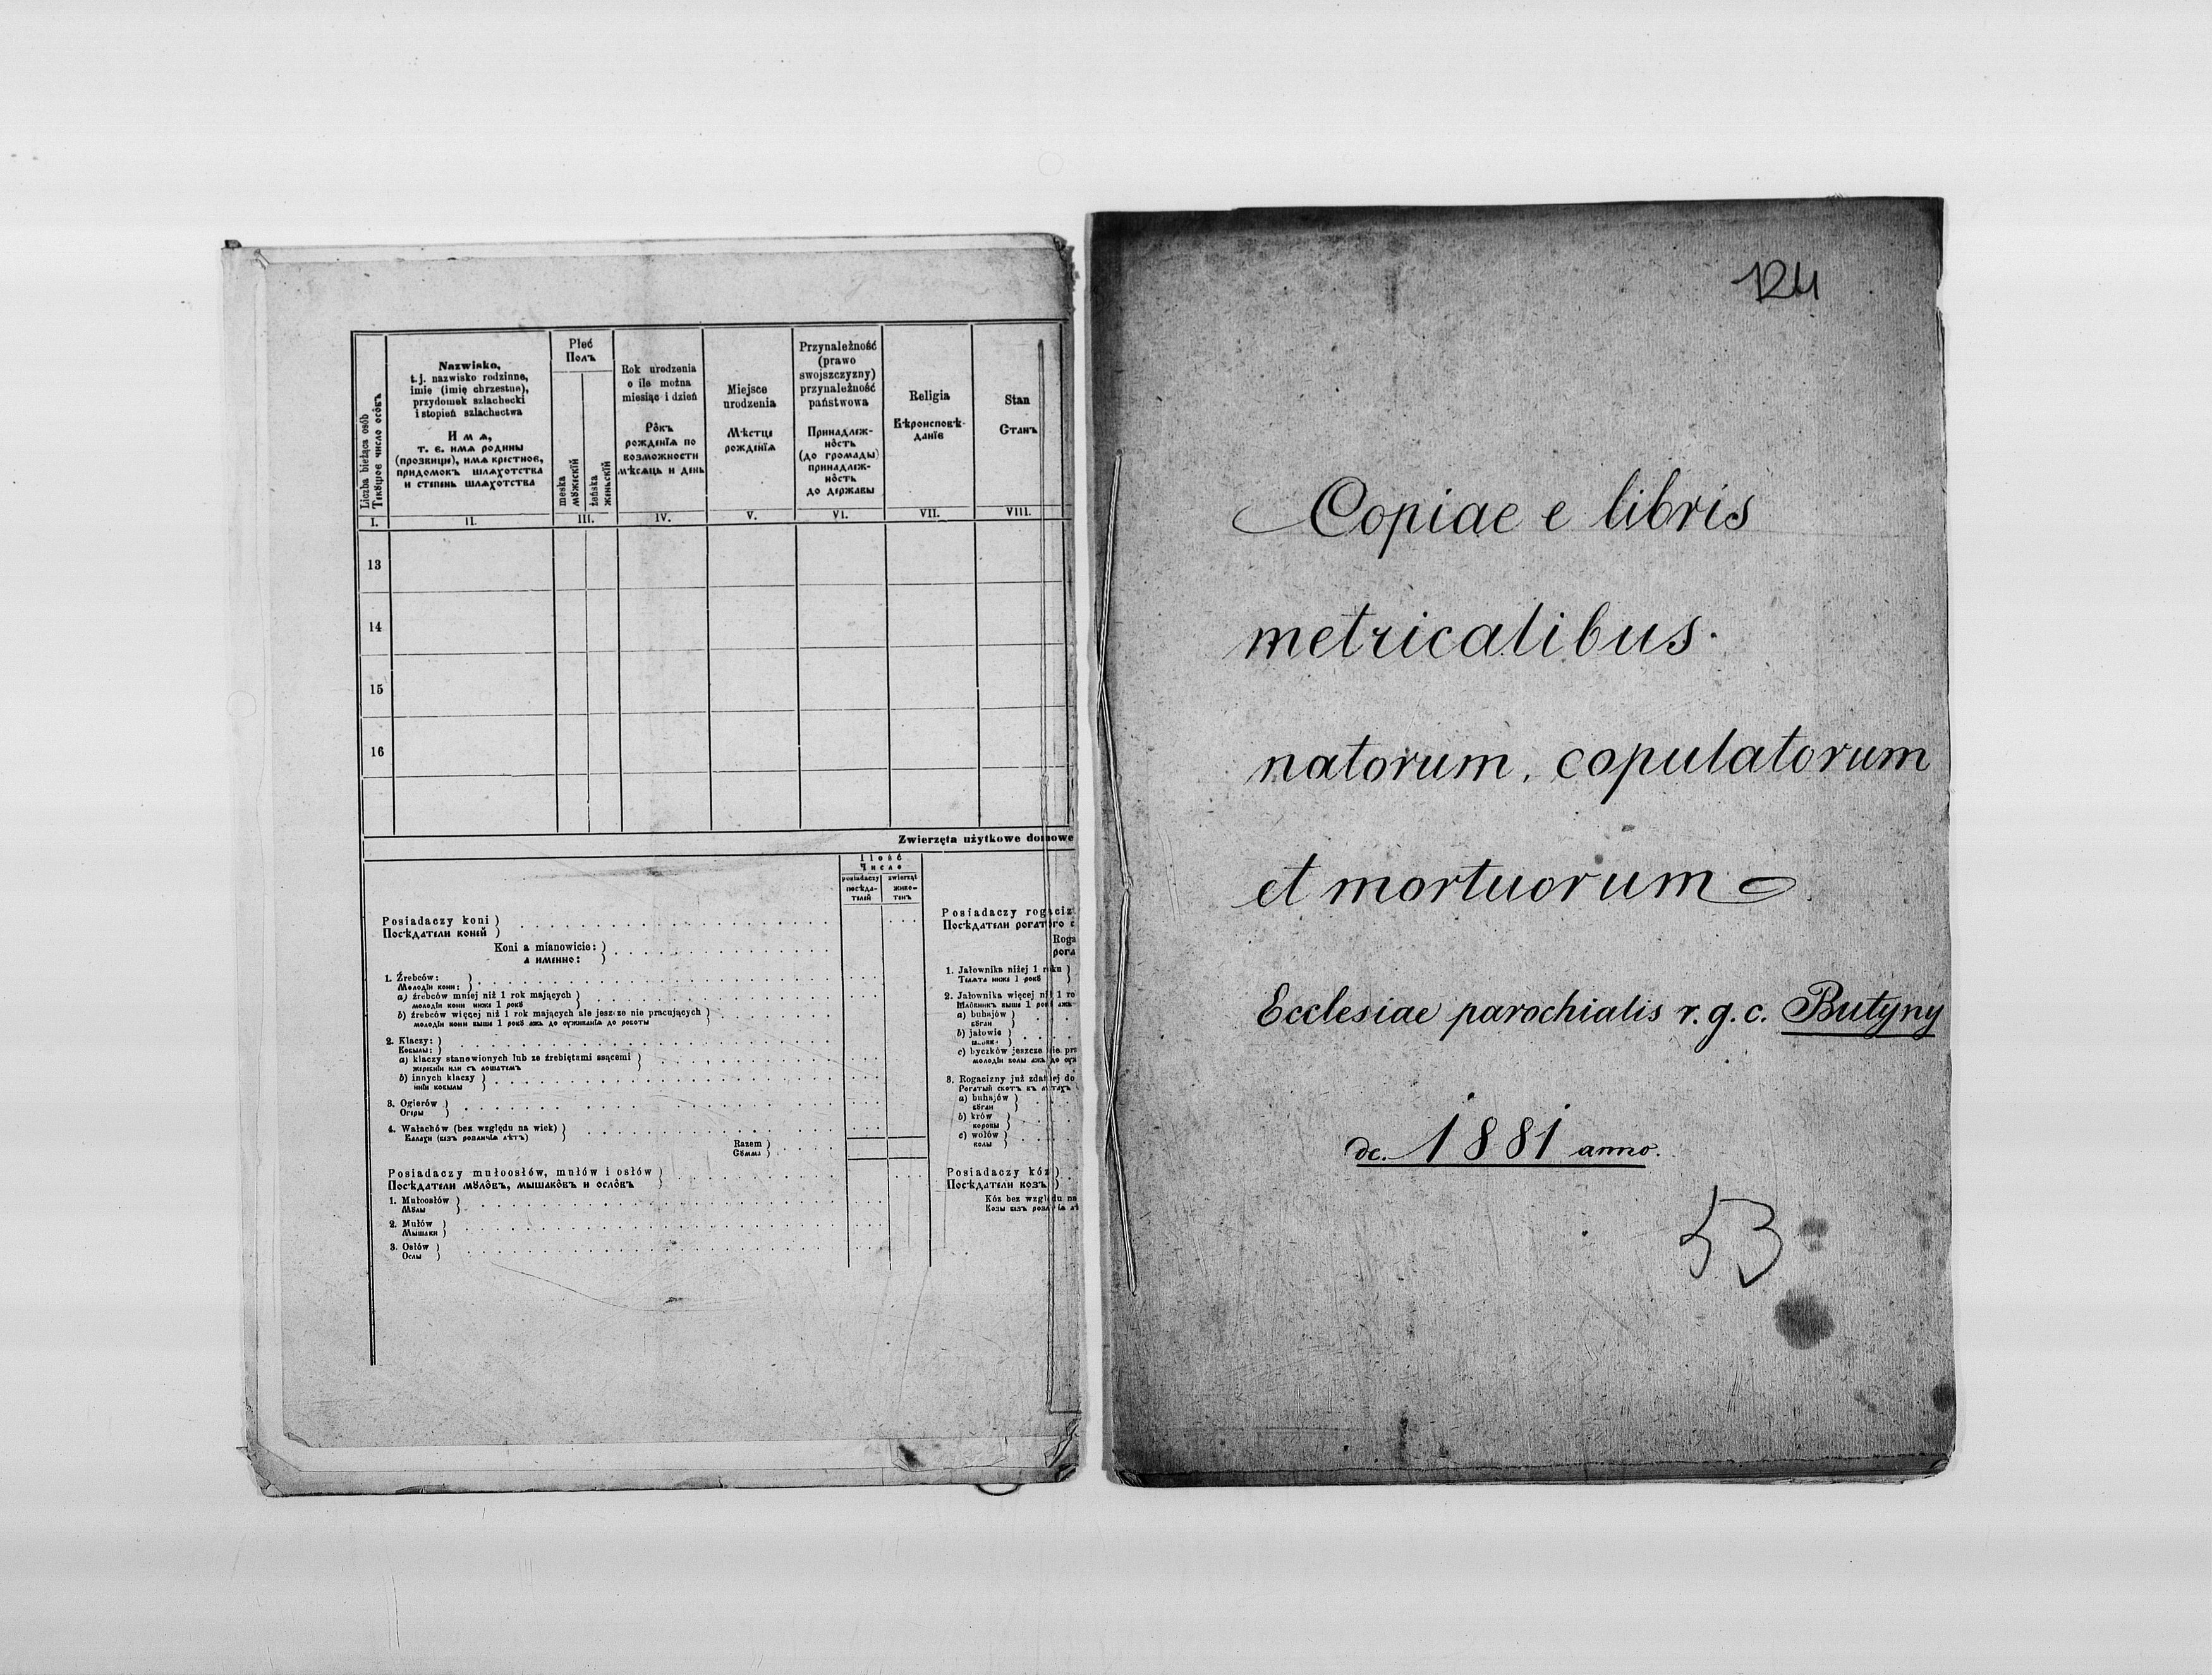 Liczba bieżąca osób
Текꙋщое число осôбъ
Nazwisko,
t.j. nazwisko rodzinne,
imię (imię chrzestne),
przydomek szlachecki
i stopień szlachectwa
И м ѧ,
т. є. имѧ родины
(прозвищє), имѧ крєстноє,
придомокъ шлѧхотства
и стєпєнь шлѧхотства
Płeć
Полъ
męska
мꙋжєскій
żeńska
жєньскій
Rok urodzenia
o ile można
miesiąc i dzień
Рôкъ
рождєніѧ по
возможности
мѣсѧць и дєнь
Miejsce
urodzenia
Мѣстцє
рождєніѧ
Przynależność
(prawo
swojszczyzny)
przynależność
państwowa
Принадлєж-
нôсть
(до громады)
принадлєж-
нôсть
до дєржавы
Religia
Вѣроисповѣ-
даніє
Stan
Станъ
I. II. III. IV. V. VI. VII. VIII.
13
14
15
16
Zwierzęta użytkowe domowe
Ilość
Число
posiadaczy
посѣда-
тєлєй
zwierząt
живо-
тєнъ
Posiadaczy koni
Посѣдатєли конєй
Koni a mianowicie:
а имєнно:
1. Źrebców:
Молодіи кони:
a) źrebców mniej niż 1 rok mających
молодіи кони нижє 1 рокꙋ
b) źrebców więcej niż 1 rok mających ale jeszcze nie pracujących
молодіи кони вышє 1 рокꙋ ажь до оуживаніѧ до роботы
2. Klaczy:
Кобылы:
a) klaczy stanowionych lub ze źrebiętami ssącemi
жєрєбніи или съ лошатємъ
b) innych klaczy
инии кобылы
3. Ogierów
Огєры
4. Wałachów (bez względu na wiek)
Валахи (бєзъ розличіѧ лѣтъ)
Razem
Сꙋмма
Posiadaczy mułoosłów, mułów i osłów
Посѣдатєли мꙋлôвъ, мышакôвъ и ослôвъ
1. Mułoosłów
Мꙋлы
2. Mułów
Мышаки
3. Osłów
Ослы
Posiadaczy rogaciz
Посѣдатєли рогатого
Roga
рога
1. Jałownika niżej 1 roku
Тєлѧта нижє 1 рокꙋ
2. Jałownika więcej niż 1 ro
a) buhajów
бꙋгаи
b) jałowie
c) byczków jeszcze nie
молодіи волы ажь до
3. Rogacizny już zdatnej do
Рогатый скотъ въ лѣтахъ
a) buhajów
бꙋгаи
b) krów
коровы
c) wołów
волы
Posiadaczy kóz
Посѣдатєли козъ
Kóz bez względu na
Козы бєзъ
124
Copiae e libris
metricalibus.
natorum, copulatorum
et mortuorum
Ecclesiae parochialis r. g. c. Butyny
de. 1881 anno.
53